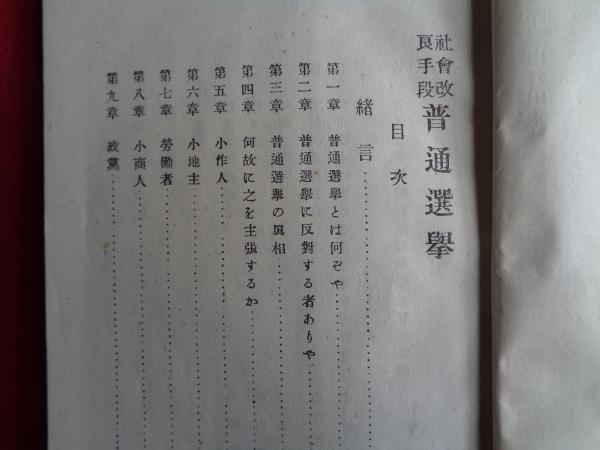 社會改良手段 普通選擧
目次
緒言
第一章 普通選擧とは何ぞや
第二章 普通選擧に反對する者ありや
第三章 普通選擧の眞相
第四章 何故に之を主張するか
第五章 小作人
第六章 小地主
第七章 勞働者
第八章 小商人
第九章 政黨